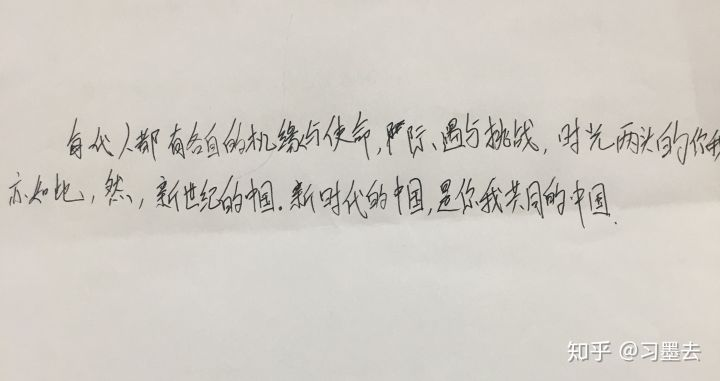 每代人都有各自的机缘与使命,际遇与挑战,时光两头的你我
亦如此,然,新世纪的中国.新时代的中国,是你我共同的中国.
知乎 @习墨去